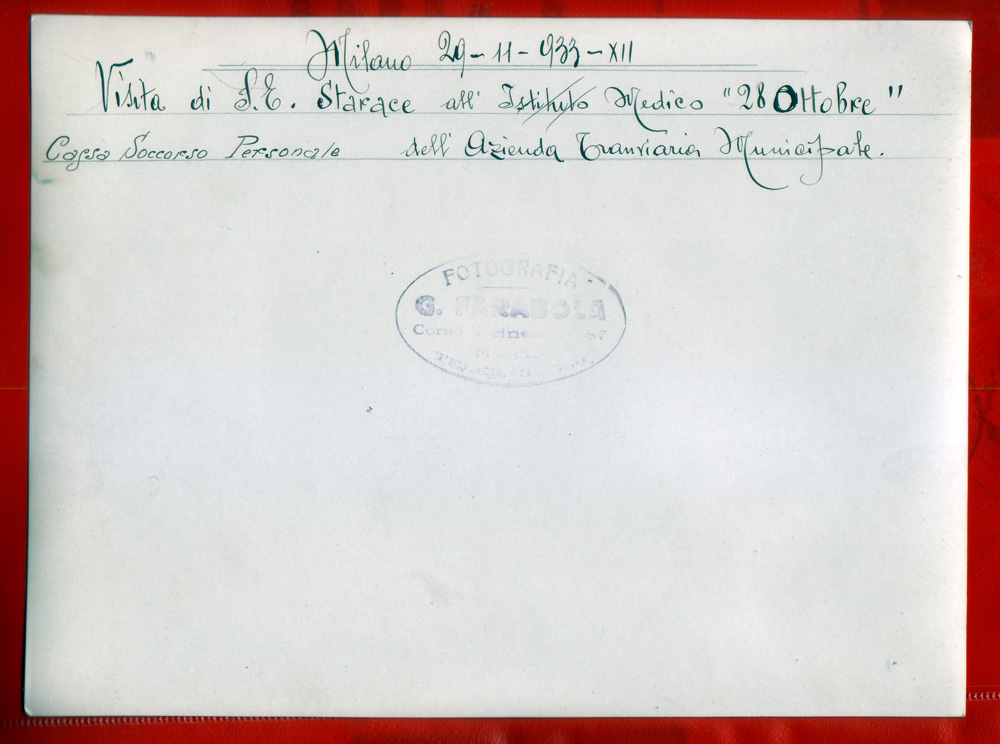 Milano 29-11-933-XII
Visita di S.E. Starace all' Istituto Medico "28 Ottobre"
Cassa Soccorso Personale dell' Azienda Tranviaria Municipale.
FOTOGRAFIA
G. FARABOLA
Corso
MILANO